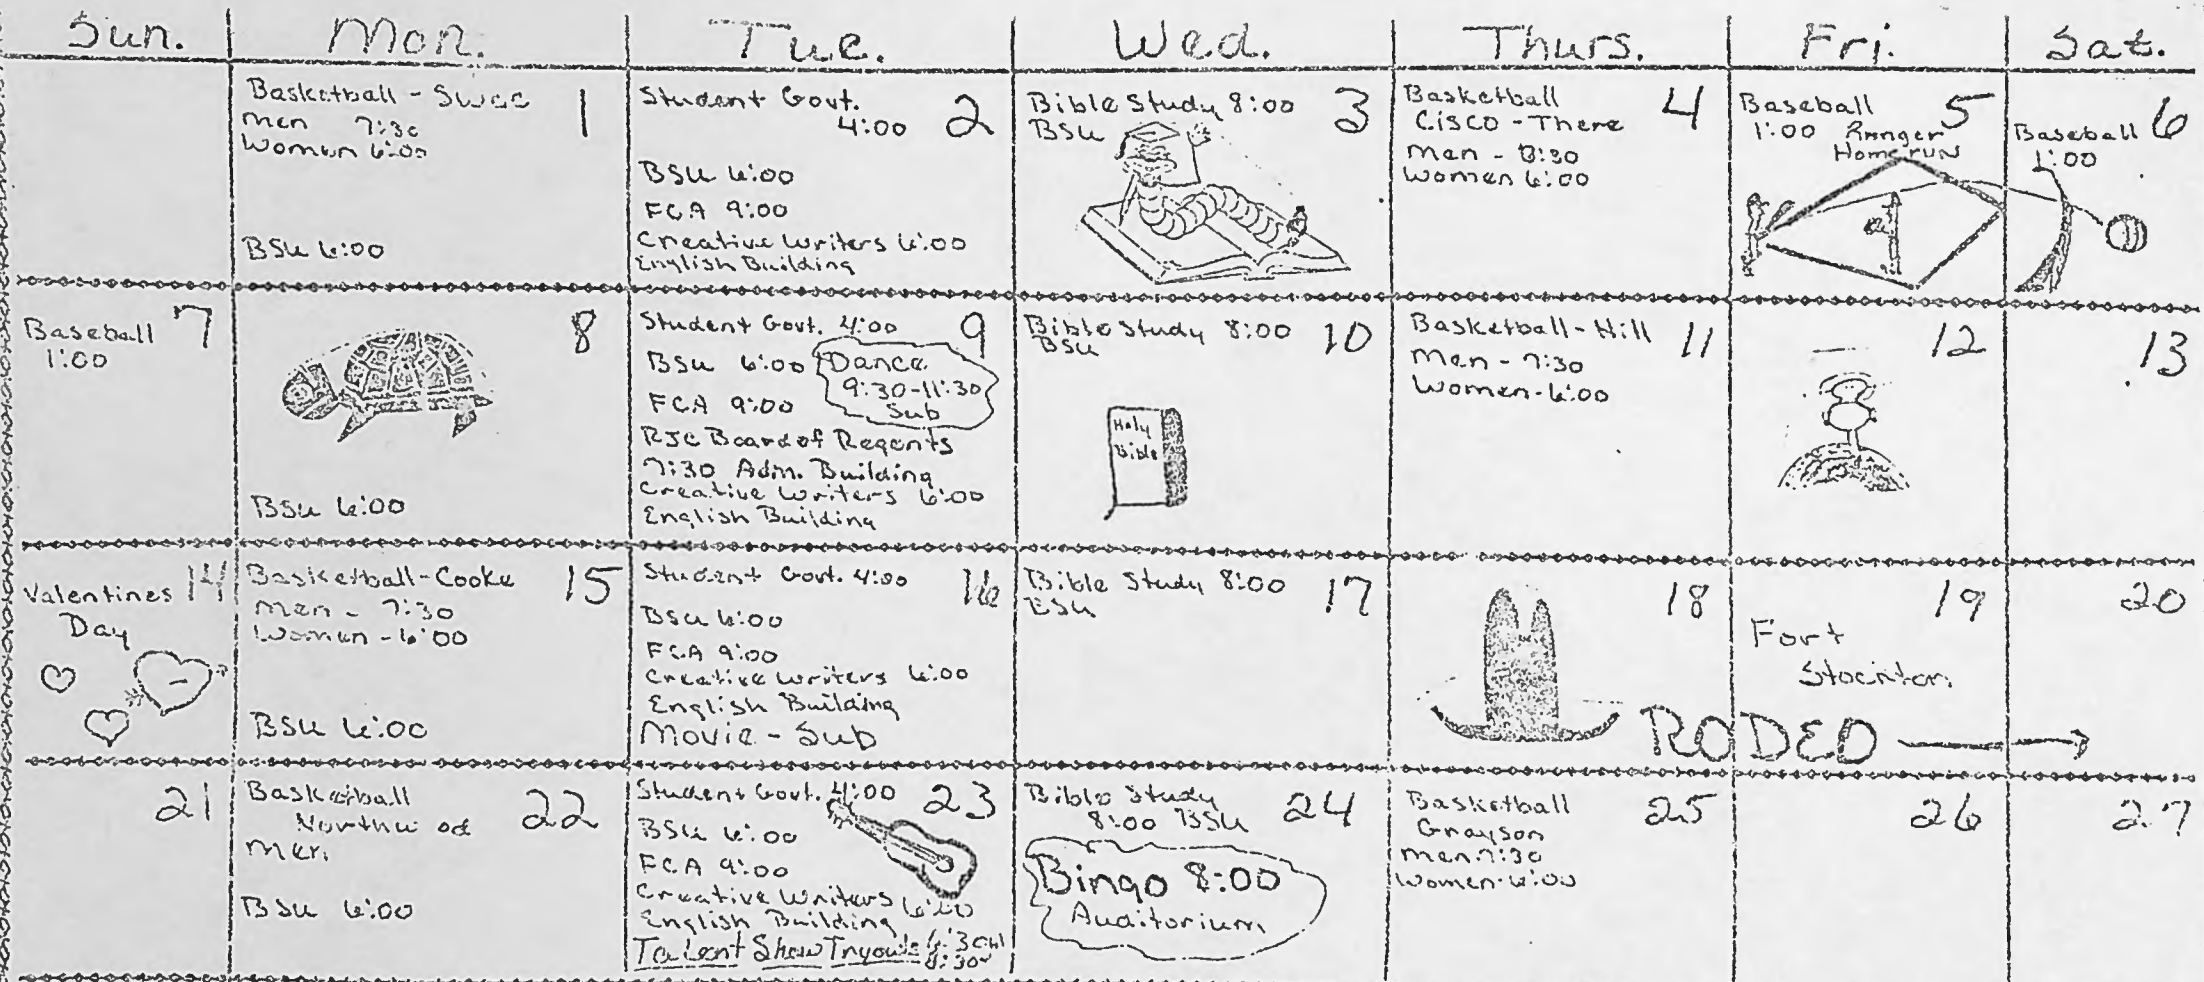 Sun. Mon. Tue. Wed. Thurs. Fri. Sat.
Basketball - Swcc 1
Men 7:30
Women 6:00
BSU 6:00
Student Govt. 2
4:00
BSU 6:00
FCA 9:00
Creative Writers 6:00
English Building
Bible Study 8:00 3
BSU
Basketball 4
Cisco - There
Men - 8:30
Women 6:00
Baseball 5
1:00 Ranger
Homerun
Baseball 6
1:00
Baseball 7
1:00
8
BSU 6:00
Student Govt. 4:00 9
BSU 6:00
Dance
9:30-11:30
Sub
FCA 9:00
RJC Board of Regents
7:30 Adm. Building
Creative Writers 6:00
English Building
Bible Study 8:00 10
BSU
Holy
Bible
Basketball - Hill 11
Men - 7:30
Women - 6:00
12
13
Valentines 14
Day
Basketball - Cooke 15
Men - 7:30
Women - 6:00
BSU 6:00
Student Govt. 4:00 16
BSU 6:00
FCA 9:00
Creative Writers 6:00
English Building
Movie - Sub
Bible Study 8:00 17
BSU
18
19
Fort
Stockton
20
RODEO
21
Basketball 22
Men
BSU 6:00
Student Govt. 4:00 23
BSU 6:00
FCA 9:00
Creative Writers 6:00
English Building
Talent Show Tryouts
Bible Study 24
8:00 BSU
Bingo 8:00
Auditorium
Basketball 25
Grayson
Men 7:30
Women - 6:00
26
27